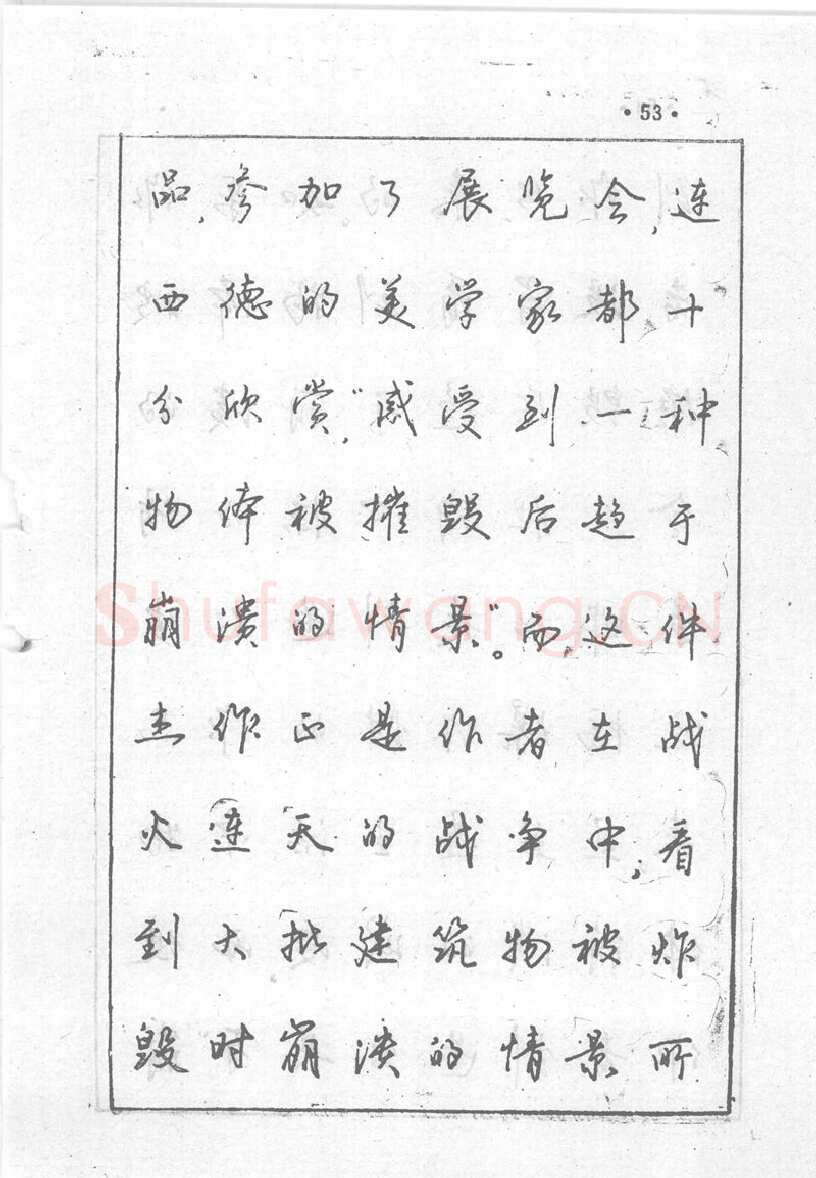 ·53·
品,参加了展览会,连
西德的美学家都十
分欣赏,“感受到一种
物体被摧毁后趋于
崩溃的情景”。而这件
杰作正是作者在战
火连天的战争中,看
到大批建筑物被炸
毁时崩溃的情景所
Shufawang.CN